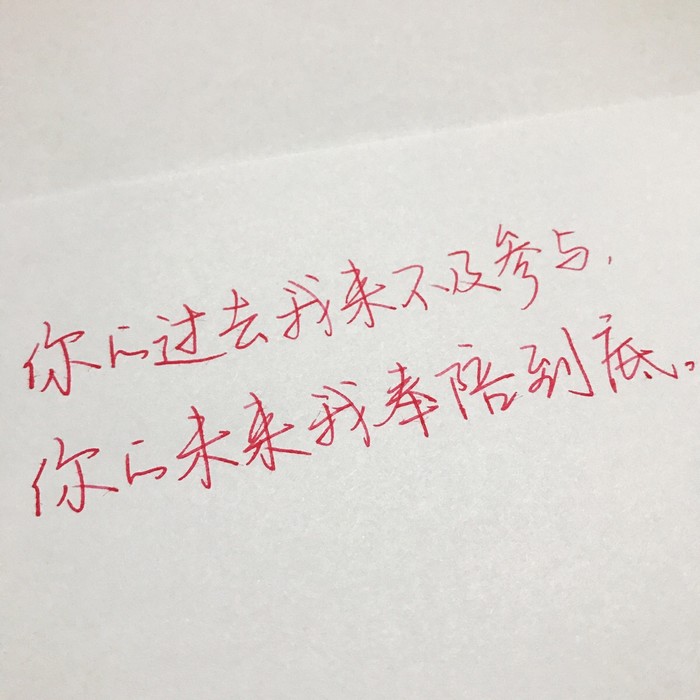 你的过去我来不及参与,
你的未来我奉陪到底。